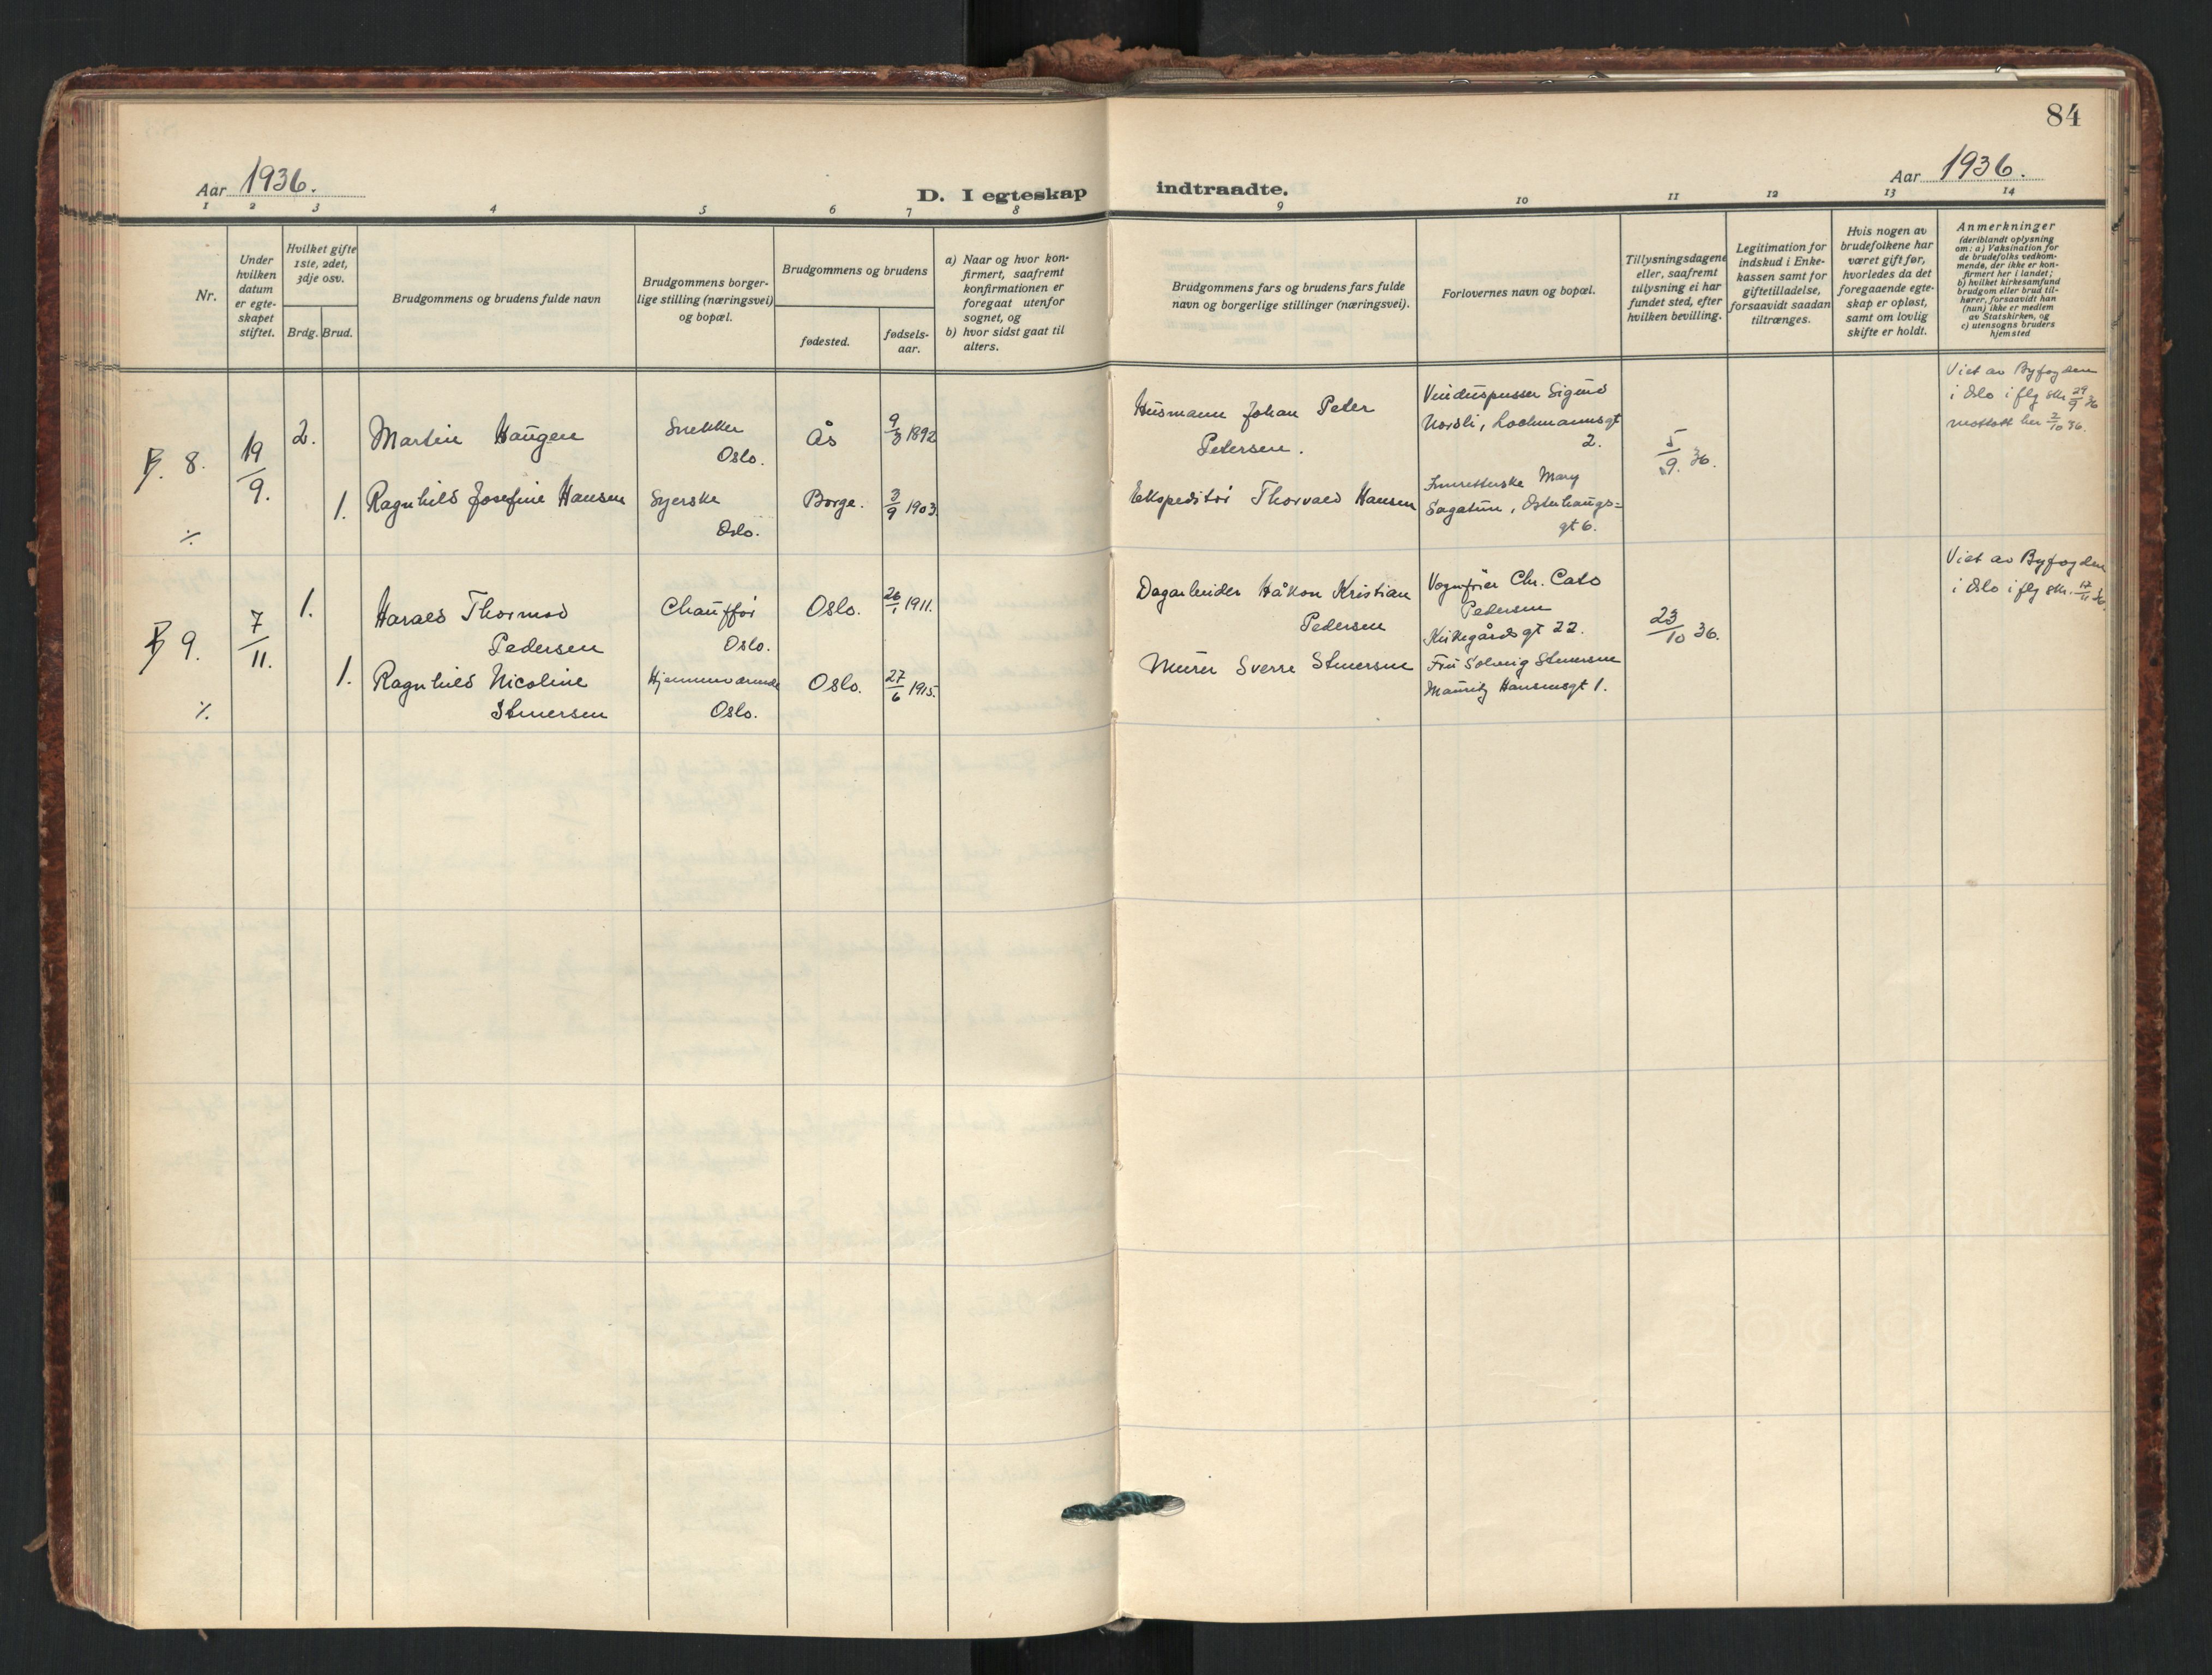 84
Aar 1936.
Aar 1936.
D. I egteskap indtraadte.
1 2 3 4 5 6 7 8 9 10 11 12 13 14
Nr.
Under
hvilken
datum
er egte-
skapet
stiftet.
Hvilket gifte
1ste, 2det,
3dje osv.
Brdg. Brud.
Brudgommens og brudens fulde navn
Brudgommens borger-
lige stilling (næringsvei)
og bopæl.
Brudgommens og brudens
fødested.
fødsels-
aar.
a) Naar og hvor kon-
firmert, saafremt
konfirmationen er
foregaat utenfor
sognet, og
b) hvor sidst gaat til
alters.
Brudgommens fars og brudens fars fulde
navn og borgerlige stillinger (næringsvei).
Forlovernes navn og bopæl.
Tillysningsdagene
eller, saafremt
tillysning ei har
fundet sted, efter
hvilken bevilling.
Legitimation for
indskud i Enke-
kassen samt for
giftetilladelse,
forsaavidt saadan
tiltrænges.
Hvis nogen av
brudefolkene har
været gift før,
hvorledes da det
foregaaende egte-
skap er opløst,
samt om lovlig
skifte er holdt.
Anmerkninger
(deriblandt oplysning
om: a) Vaksination for
de brudefolks vedkom-
mende, der ikke er kon-
firmert her i landet;
b) hvilket kirkesamfund
brudgom eller brud til-
hører, forsaavidt han
(hun) ikke er medlem
av Statskirken, og
c) utensogns bruders
hjemsted
B. 8.
19/9.
2.
Martin Haugen
Snekker
Oslo.
Ås
9/3 1892
Husmann Johan Peter
Pedersen.
Vinduspusser Sigurd
Norsli, Lochmannsgt
2.
5/9. 36.
Viet av Byfogden
i Oslo iflg skr. 29/9 36
mottatt her 2/10 36.
1.
Ragnhild Josefine Hansen
Syerske
Oslo.
Borge.
3/9 1903
Ekspeditør Thorvald Hansen
Mary
Sagatun, Osterhaugs=
gt 6.
%
B 9.
7/11.
1.
Harald Thormod
Pedersen
Chauffør
Oslo.
Oslo.
26/1 1911.
Dagarbeider Håkon Kristian
Pedersen
Vognfører Chr. Cato
Pedersen
Kirkegårdsgt 22.
23/10 36.
Viet av Byfogden
i Oslo iflg skr. 17/11 36.
1.
Ragnhild Nicoline
Stenersen
Hjemmeværende
Oslo.
Oslo.
27/6 1915.
Murer Sverre Stenersen
Fru Solveig Stenersen
Mauritz Hansensgt 1.
%